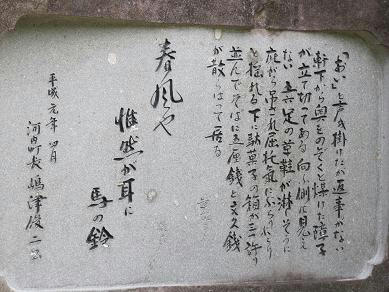 「おい」と声を掛けたが返事がない
軒下から奥をのぞくと煤けた障子
が立て切ってある向う側は見え
ない 五六足の草鞋が淋しそうに
庇から吊され屈托気にふらりふらり
と揺れる 下に駄菓子の箱が三つ許り
並んでそばに五厘銭と文久銭
が散らばって居る
春風や
惟然が耳に
馬の鈴
平成元年 四月
河内町長 嶋津俊二